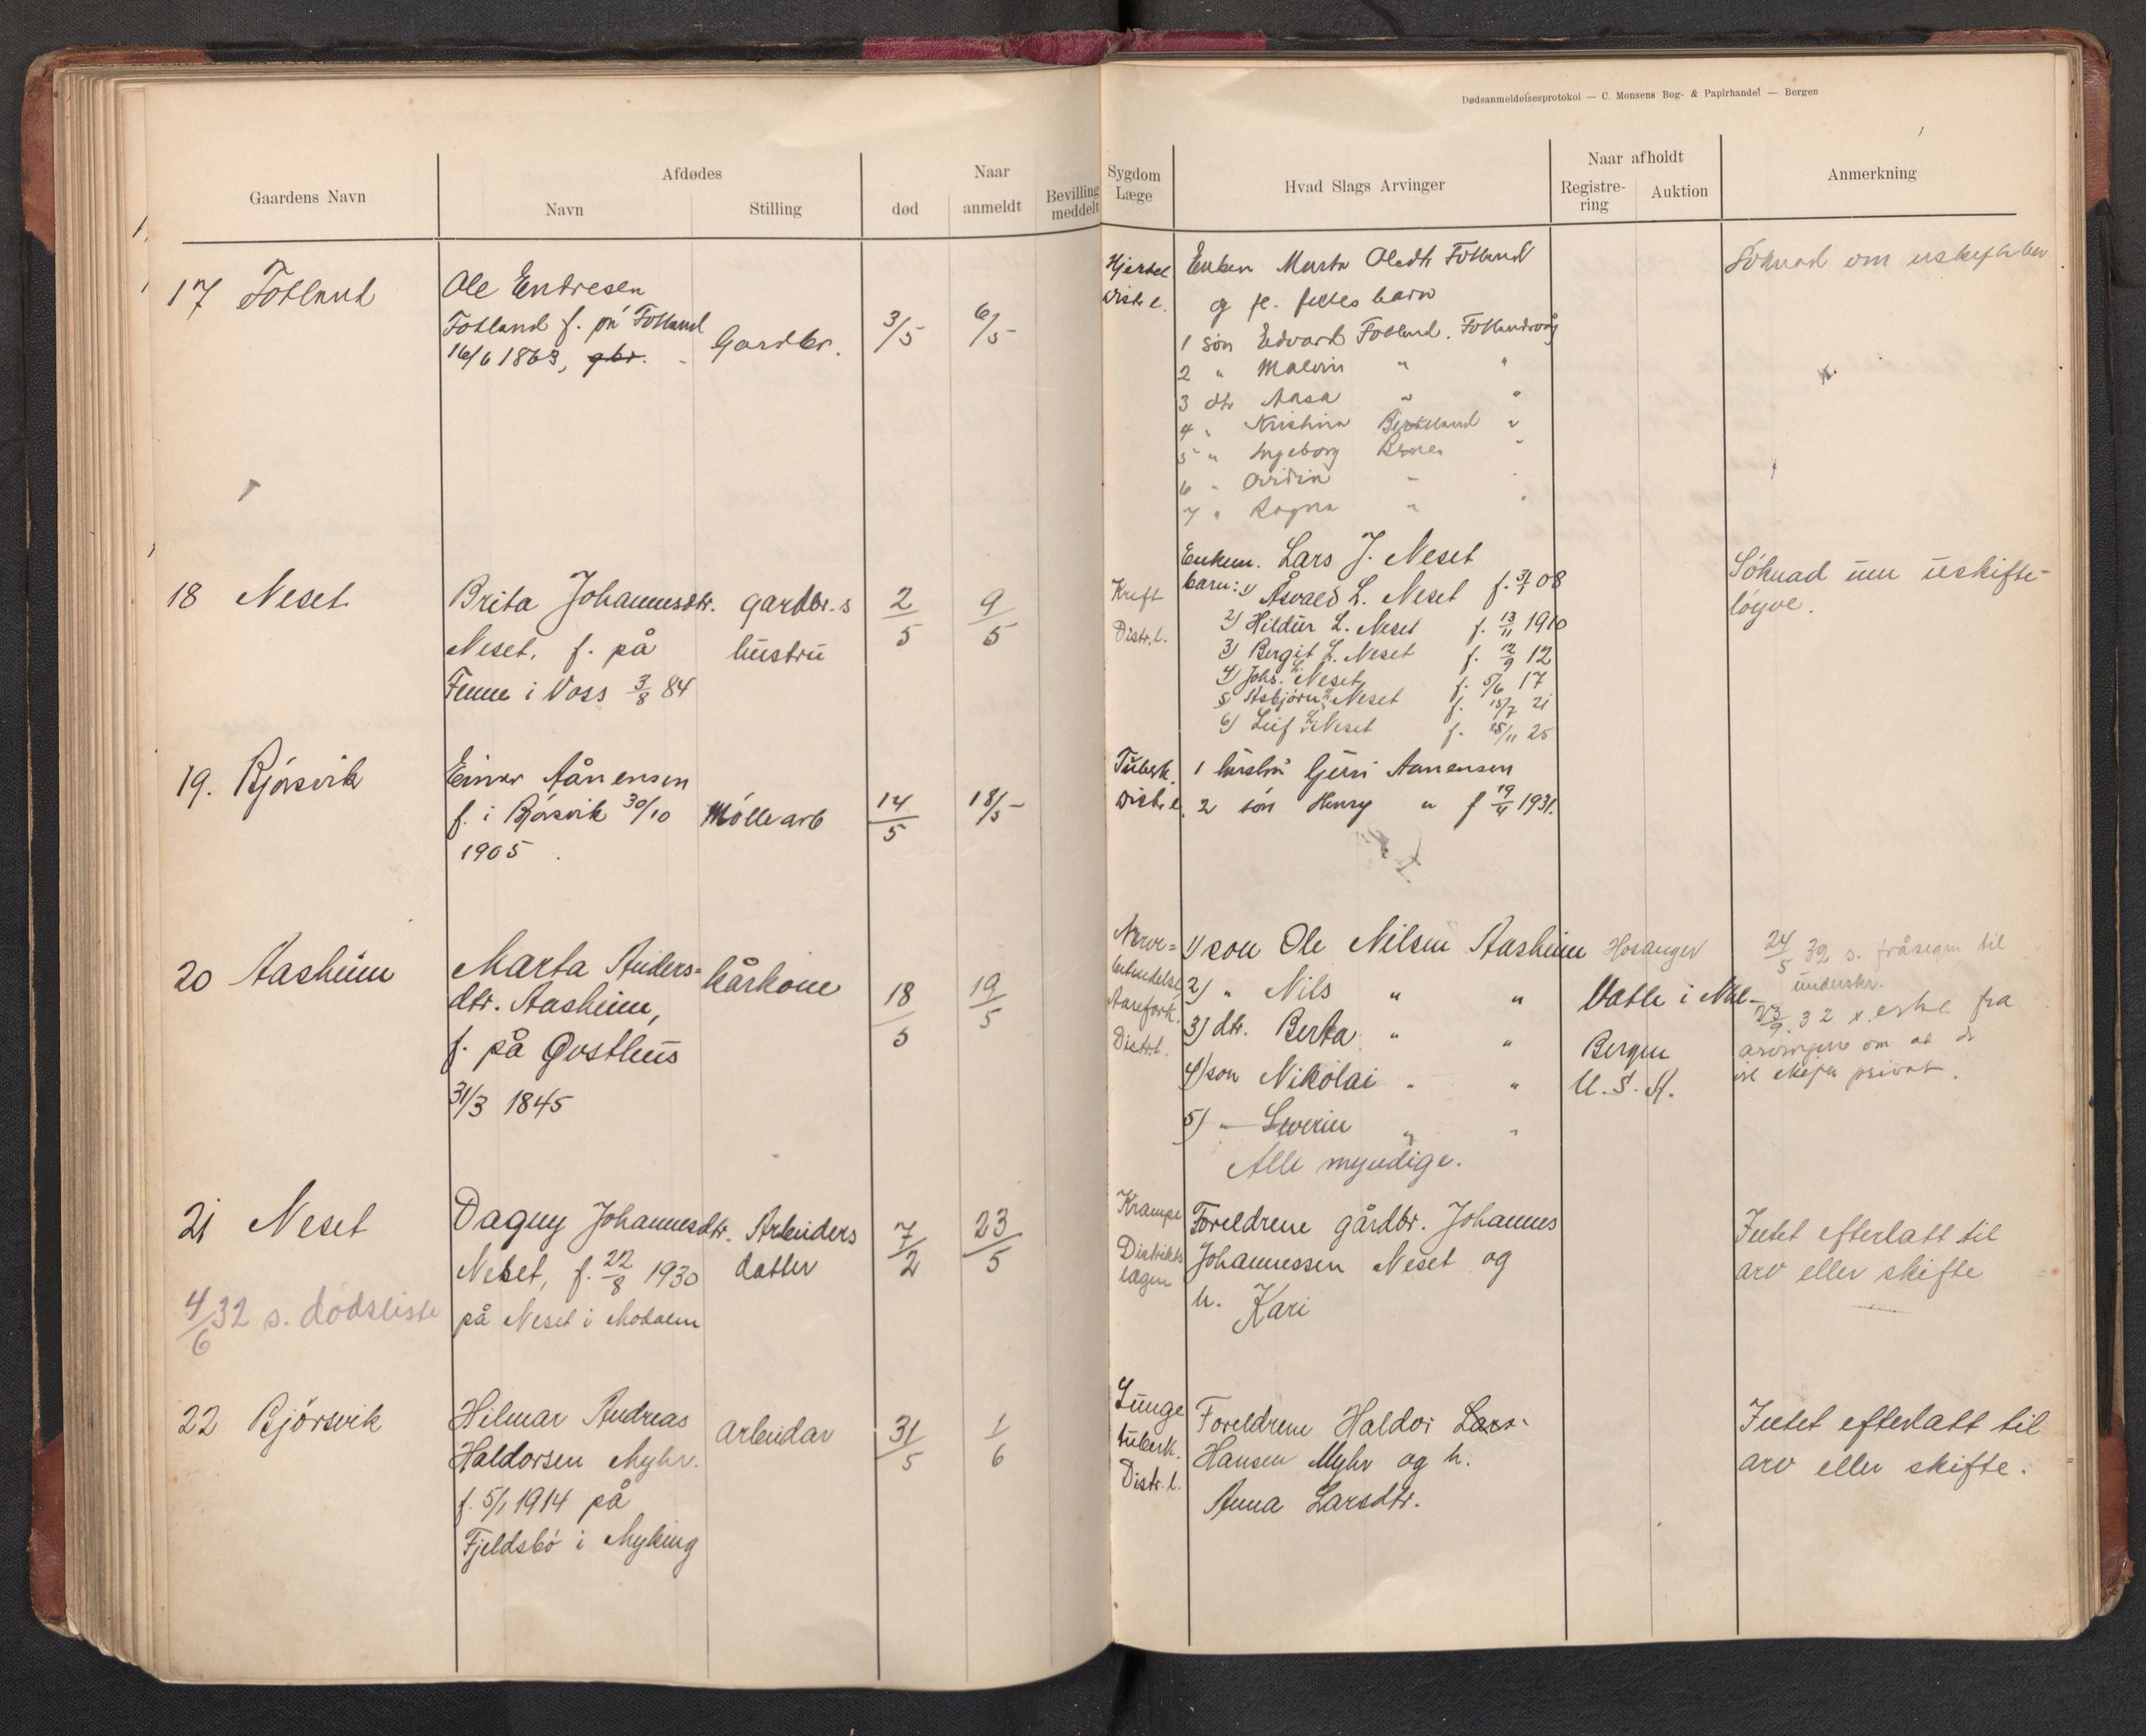 Dødsanmeldelsesprotokol — C. Monsens Bog- & Papirhandel — Bergen
Gaardens Navn
Afdødes
Navn
Stilling
Naar
død
anmeldt
Bevilling meddelt
Sygdom
Læge
Hvad Slags Arvinger
Naar afholdt
Registre-
ring
Auktion
Anmerkning
17 Fotland
Ole Endresen
Fotland f. på Fotland
16/6 1863, gbr.
Gardbr.
3/5
6/5
Distr. l.
Enken Marta Olsdtr Fotland
og felles barn
1 søn Edvard Fotland. Fotlandsvåg
2 " Malvin " "
3 dtr Aasa " "
4 " Kristina "
5 " Ingeborg "
6 "
7 " Ragna " "
Søknad om
18 Neset
Brita Johannesdtr.
Neset, f. på
i Voss 3/8 84
gardbr.s
hustru
2/5
9/5
Kreft
Distr. l.
Enkem. Lars J. Neset
barn: 1) Åsvald L. Neset f. 08
2) Hildur L. Neset f. 13/11 1910
3) Bergit L. Neset f. 12/9 12
4) Johs. L. Neset f. 5/6 17
5 Asbjørn L. Neset f. 15/7 21
6) Leif L. Neset f. 25
Søknad um uskifte-
løyve.
19. Bjørsvik
Einar Aanensen
f. i Bjørsvik 30/10
1905
Møllearb
14/5
18/5
Tuberk.
Distr. l.
1 hustru Guri Aanensen
2 søn Henry " f 1931.
20 Aasheim
Marta Anders-
dtr. Aasheim,
f. på Øvsthus
31/3 1845
kårkone
18/5
19/5
Nerve-
betendelse
Aarefork.
Distr. l.
1) son Ole Nilsen Aasheim Hosanger
2) " Nils " " Vatle i
3) dtr. Berta " " Bergen
4) son Nikolai " " U.S.A.
5) " Severin " "
Alle myndige.
24/5 32 s. fråsegn til
underskr.
23/9 32 fra
arvingene om at de
vil skifte privat.
21 Neset
4/6 32 s. dødsliste
Dagny Johannesdtr.
Neset, f. 22/8 1930
på Neset i Modalen
Arbeiders
datter
7/2
23/5
Krampe
Distrikts
lægen
Foreldrene gårdbr. Johannes
Johannessen Neset og
h. Kari
Intet efterlatt til
arv eller skifte
22 Bjørsvik
Hilmar Andreas
Haldorsen Myhr.
f. 5/1 1914 på
Fjeldsbø i Myking
Arbeidar
31/5
1/6
Lunge
tuberk.
Distr. l.
Foreldrene Haldor Lars-
Hansen Myhr og h.
Anna Larsdtr.
Intet efterlatt til
arv eller skifte.